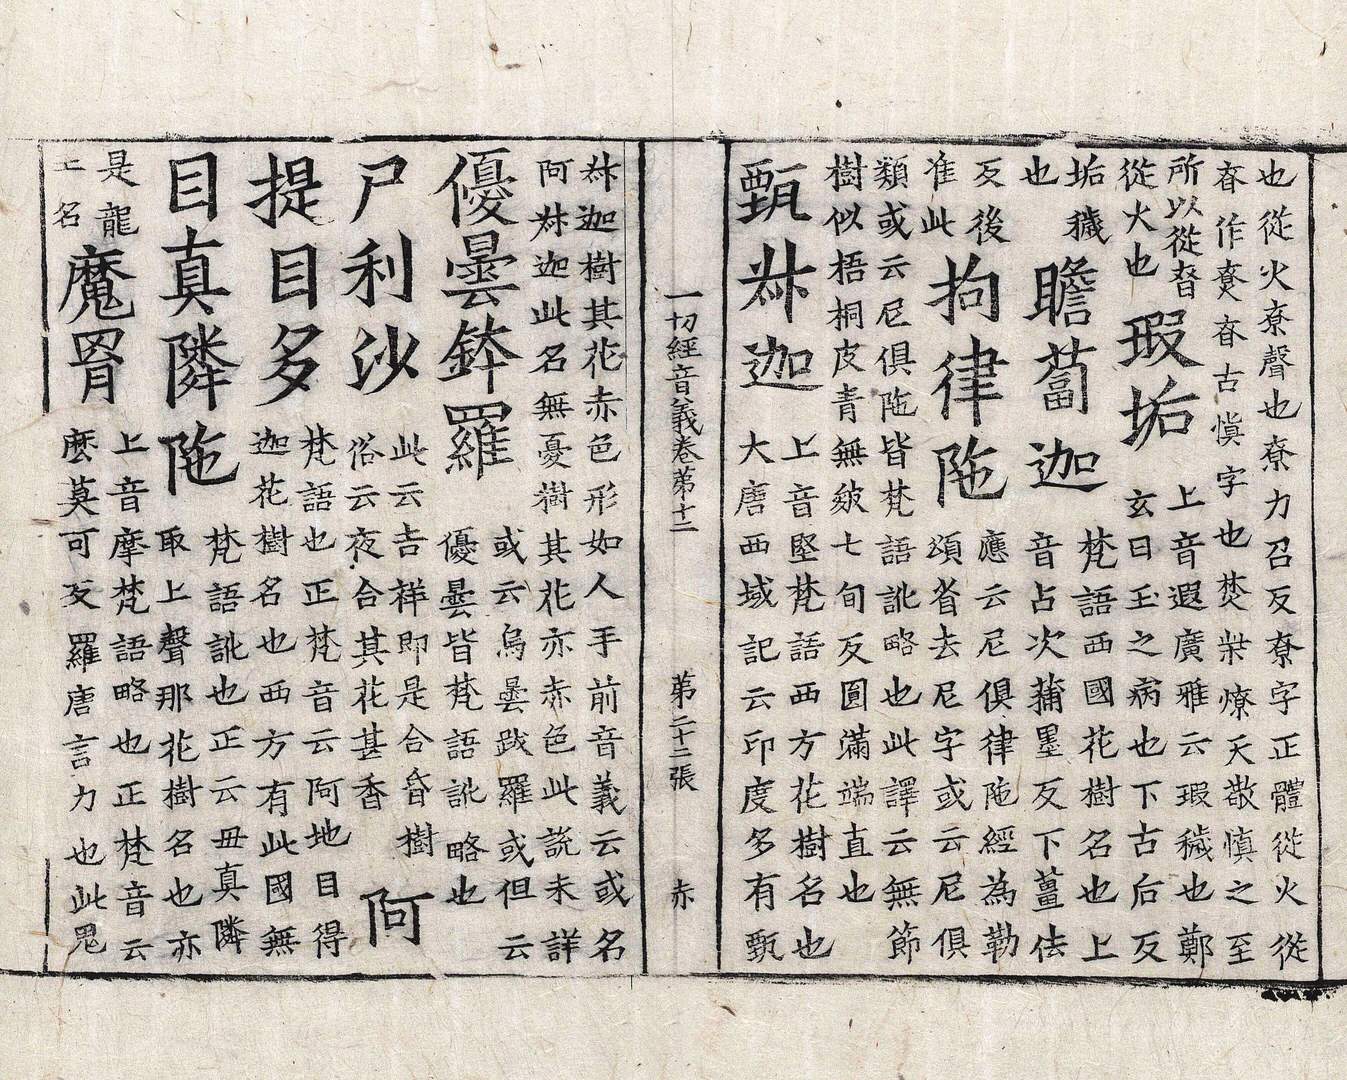 也從火尞聲也尞力召反尞字正體從火從
昚作尞昚古慎字也焚柴燎天敬慎之至
所以從昚
從火也
瑕垢
上音遐廣雅云瑕穢也鄭
玄曰玉之病也下古后反
垢穢
也
瞻蔔迦
梵語西國花樹名也上
音占次蒲墨反下薑佉
反後
准此
拘律陁
應云尼俱律陁經為勒
頌省去尼字或云尼俱
類或云尼俱陁皆梵語訛略也此譯云無節
樹似梧桐皮青無皴七旬反圓滿端直也
甄叔迦
上音堅梵語西方花樹名也
大唐西域記云印度多有甄
一切經音義卷第十二 第二十三張 赤
叔迦樹其花赤色形如人手前音義云或名
阿叔迦此名無憂樹其花亦赤色此說未詳
優曇鉢羅
或云烏曇跋羅或但云
優曇皆梵語訛略也
尸利沙
此云吉祥即是合昏樹
俗云夜合其花甚香
阿
提目多
梵語也正梵音云阿地目得
迦花樹名也西方有此國無
目真隣陁
梵語訛也正云毋真隣
取上聲那花樹名也亦
是龍
王名
魔罥
上音摩梵語略也正梵音云
麼莫可反羅唐言力也此鬼